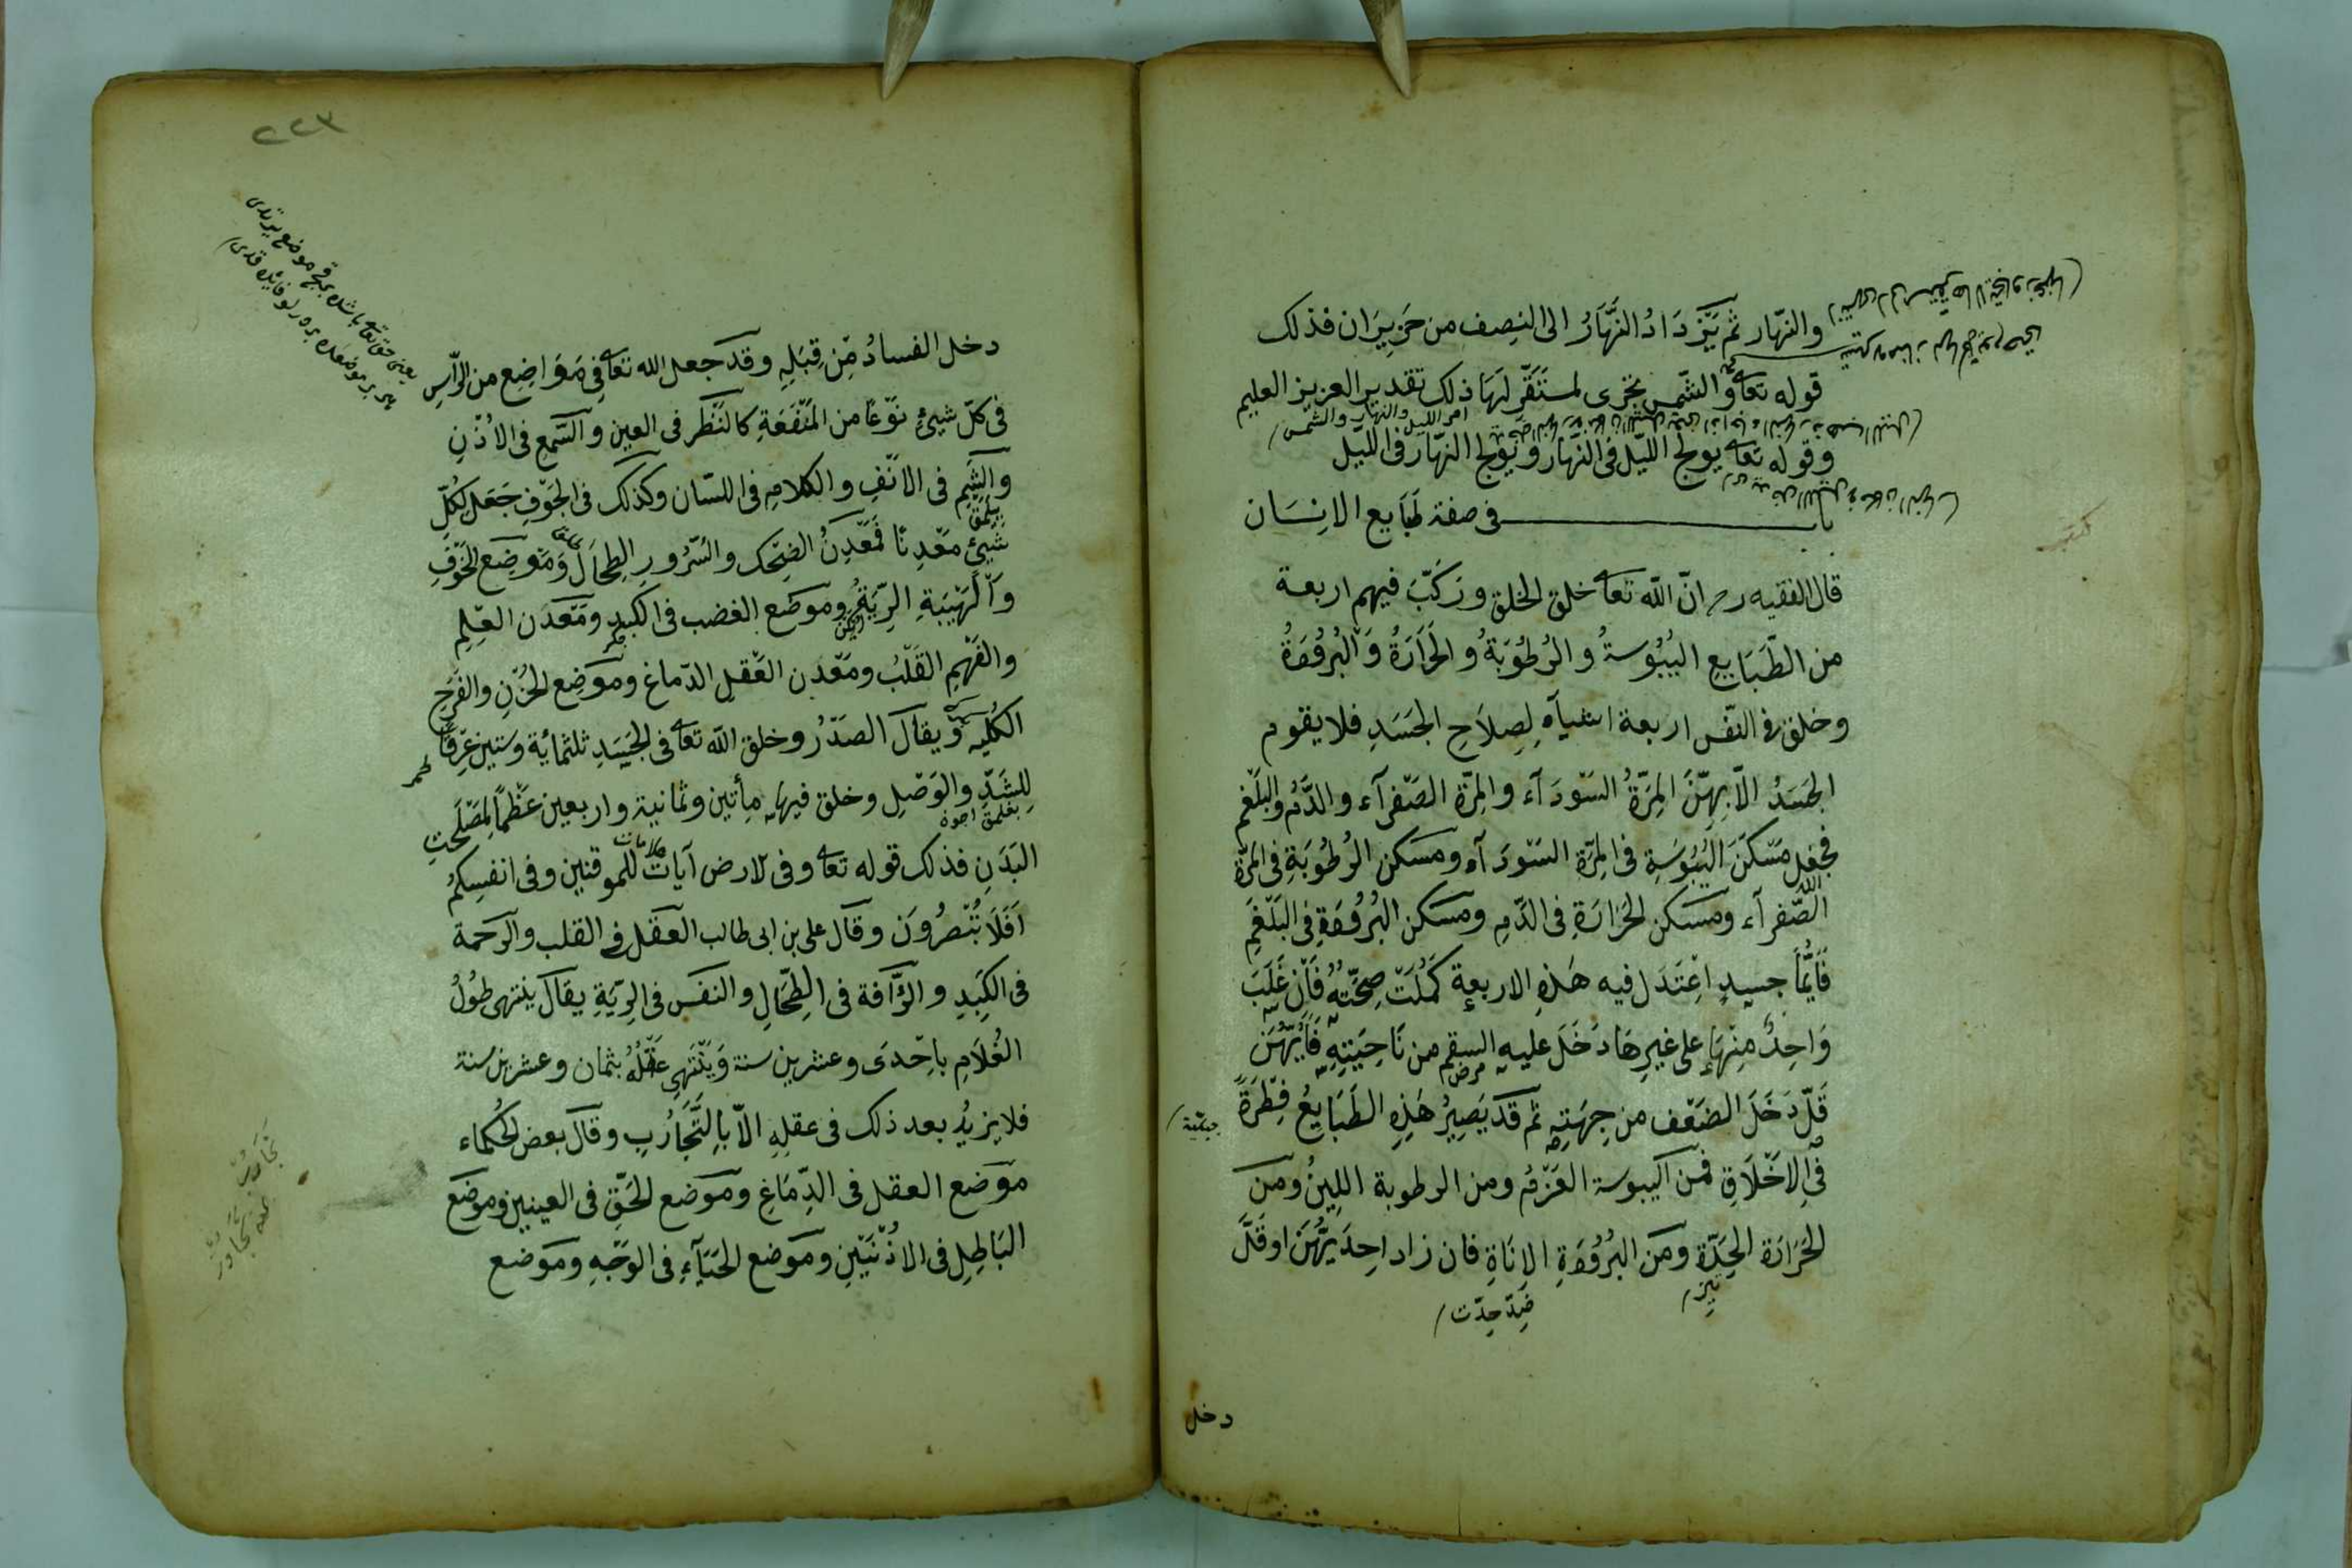 والنهّار ثم يَتَزدَادُ النَّهَارُ الى النِصف من حَزِيرَان فذلك
قوله تعا وَالشّمس تجرى لمستَقَرٍّ لَهَا ذلك تقدير العزيز العليم
امر الليل والنهار والشمس
وقوله تعا يولج اللّيل فى النّهار ويُوَلج النّهار فى اللّيل
باب فى صفة طَبَايع الانِسَان
قال الفقيه رح انّ اللّه تعا خلق الخلق ورَكَّبَ فيهم اربعة
من الطّبَايِع اليُبُوسةُ والرُطُوَبةُ والحَرَارَةُ وَالبُرُودَةُ
وخلق فى النّفس اربعة اشيآء لِصِلاَحِ الجَسَدِ فلا يقوم
الجَسَدُ الّا بِهِنَّ المِرَّةُ السَودَآء والمِرّة الصَفرآء والدَّمُ والبَلْغَم
فجعل مَسْكَنَ اليُبُوسَةِ فى المِرّة السَودَآء ومسكن الرُطُوبَةِ فى المرّة
اللّه
الصّفرآء ومسكن الحَرَارَةِ فى الدَّمِ ومسكن البُرُودَةِ فى البَلغَمِ
فَأيُّمَا جسدٍ اعِتَدَل فيه هَذه الاربعة كَمُلَتْ صِحَّتُهُ فَاِن غَلَبَ
وَاحِدٌ مِنهَا على غيرِهَا دَخَلَ عليه السقم من نَاحِيَتِهِ فَأيّهُنَّ
مرض
قَلّ دَخَلَ الضَعف من جِهَتِه ثم قد يَصِيرُ هَذِهِ الطَبَايعُ فِطرَةً
فى الاخَلاَقِ فمن اليبوسة العَزمُ ومن الرطوبة اللِينُ ومن
الحَرَارَة الحِدّة ومن البُرُودَةِ الاِنَاةِ فان زاد احِدَيهُنَّ او قَلَّ
ضِدّ حِدّت
دخل
٢٢٣
دخل الفسادُ مِن قِبَلِهِ وقد جعل الله تعا فى مَوَاضِع من الرّأسِ
فى كلّ شيئ نَوعًا من المَنفَعَةِ كالنَظَر فى العين والسَمعِ فى الاُذُنِ
والشَمِ فى الاَنفِ والكلامِ فى اللسّان وكذلك فى الجَوفِ جَعَلَ لكُلِّ
شيئٍ معَدِنًا فمَعدِنُ الضِحَك والسُرُورِ الطِحَالَ وَمَوضِع الخَوفِ
وَالهَيبَةِ الرِيَةُ وموضع الغضب فى الكَبدِ ومَعدَن العِلمِ
والفَهمِ القَلبُ ومَعدن العَقلِ الدّماغ وموَضِع الحُزنِ والفَرَحِ
الكُليه وَيقال الصَدرُ وخلق اللّه تعا فى الجَسَدِ ثلثمائة وستين عِرقًا
لِلشَدِّ والوَصلِ وخلق فيها مأتين وثمانية واربعين عَظمًا لِمَصلَحَتِ
البَدَنِ فذلك قوله تعا وفى الارض آيات للموقنين وفى انفسِكُم
اَفَلَا تُبصِرُونَ وقال على بن ابى طالب العقل فى القلب والرحَمة
فى الكبَدِ والرَّآفة فى الطِحَالِ والنفَس فى الِريَةِ يقال ينتهى طُولُ
الغُلاَمِ باحِدىَ وعشرين سنة وَيَنتَهى عَقلُهُ بثمان وعشرين سنة
فلا يزيدُ بعد ذلك فى عقلِهِ الّا بِالتَّجَارُبِ وقال بعض الحُكماء
موَضع العقل فى الدِّمَاغِ وموَضع الحَقِّ فى العينين وموضع
البَاطِلِ فى الاذُنَيَنِ وموَضع الحَيَآءِ فى الوَجَهِ وموَضع